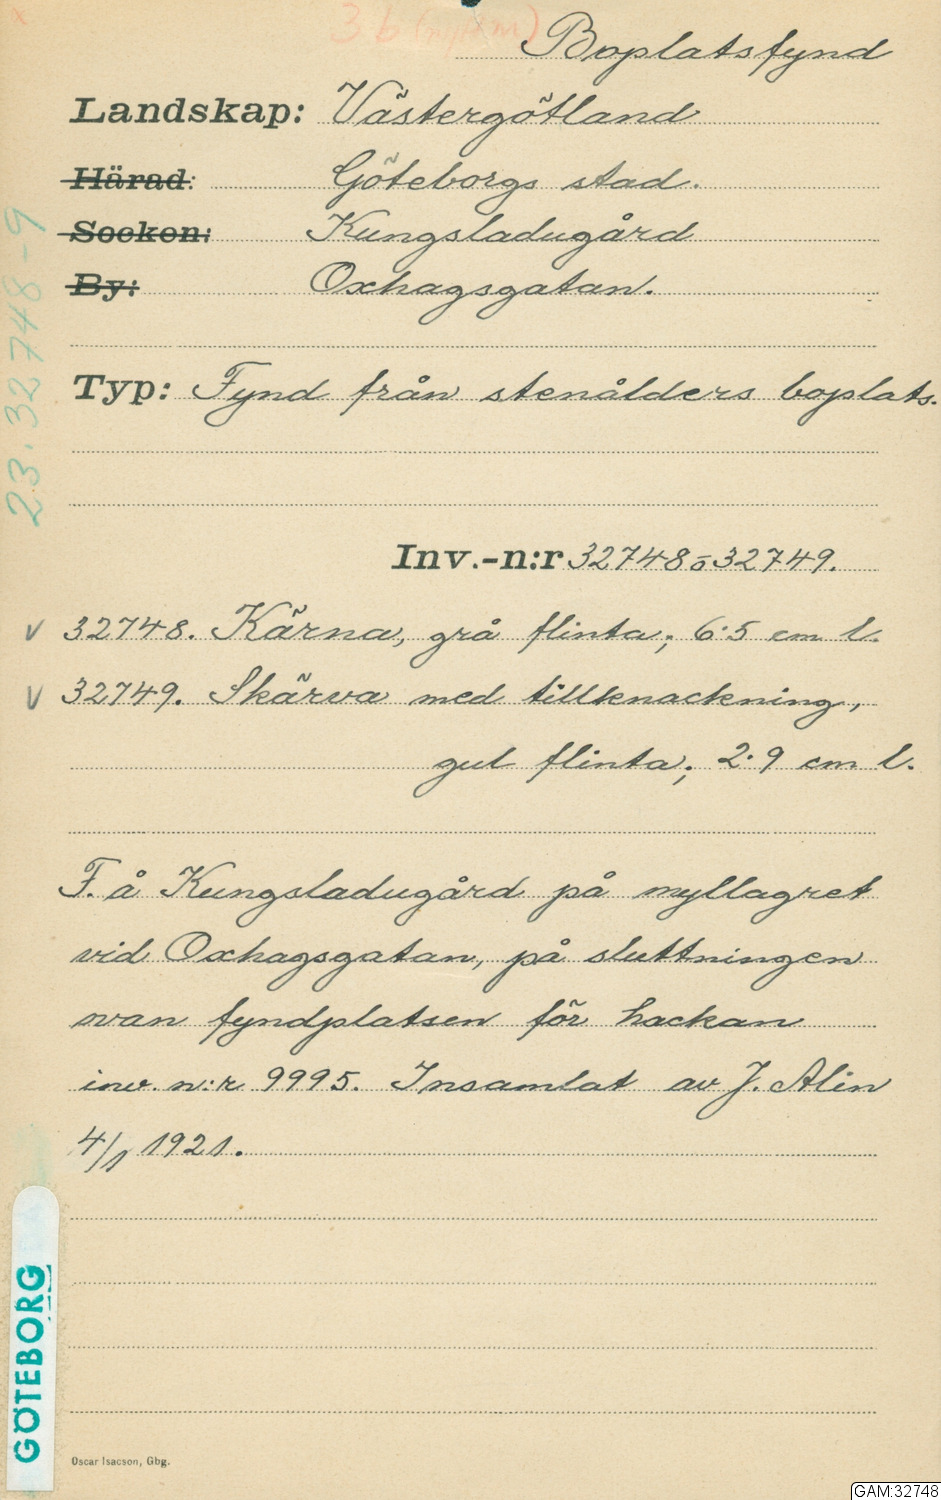 3 b
Boplatsfynd
Landskap: Västergötland
Härad: Göteborgs stad.
Socken: Kungsladugård
By: Oxhagsgatan.
23.32748-9
Typ: Fynd från stenålders boplats.
Inv.-n:r 32748 o 32749.
v 32748. Kärna, grå flinta; 6.5 cm l.
v 32749. Skärva med tillknackning,
gul flinta; 2.9 cm l.
F. å Kungsladugård på myllagret
vid Oxhagsgatan, på sluttningen
ovan fyndplatsen för hackan
inv. n:r 9995. Insamlat av J. Alin
4/1 1921.
GÖTEBORG
Oscar Isacson, Gbg.
GAM:32748